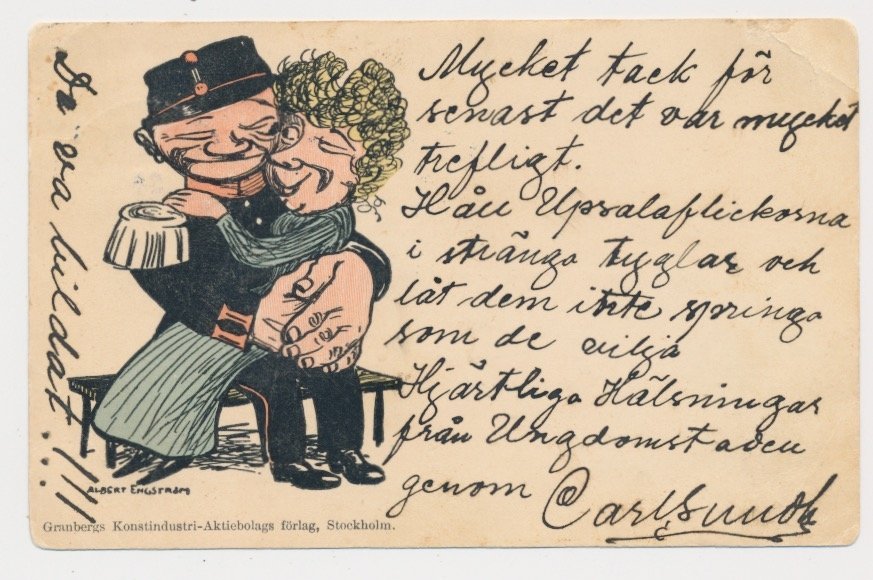 Mycket tack för
senast det var mycket
trefligt.
Håll Upsalaflickorna
i stränga tyglar och
låt dem inte springa
som de vilja
Hjärtliga Hälsningar
från
genom Carl
Da va bildat...!!!
ALBERT ENGSTRÖM
Granbergs Konstindustri-Aktiebolags förlag, Stockholm.